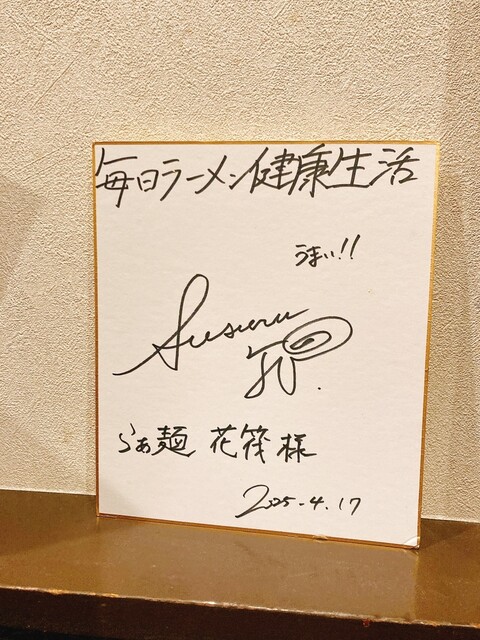 毎日ラーメン健康生活
うまい!!
Susuru
らぁ麺 花筏様
2025-4.17